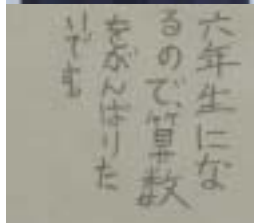 六年生にな
るので、算数
をがんばりた
いでむ